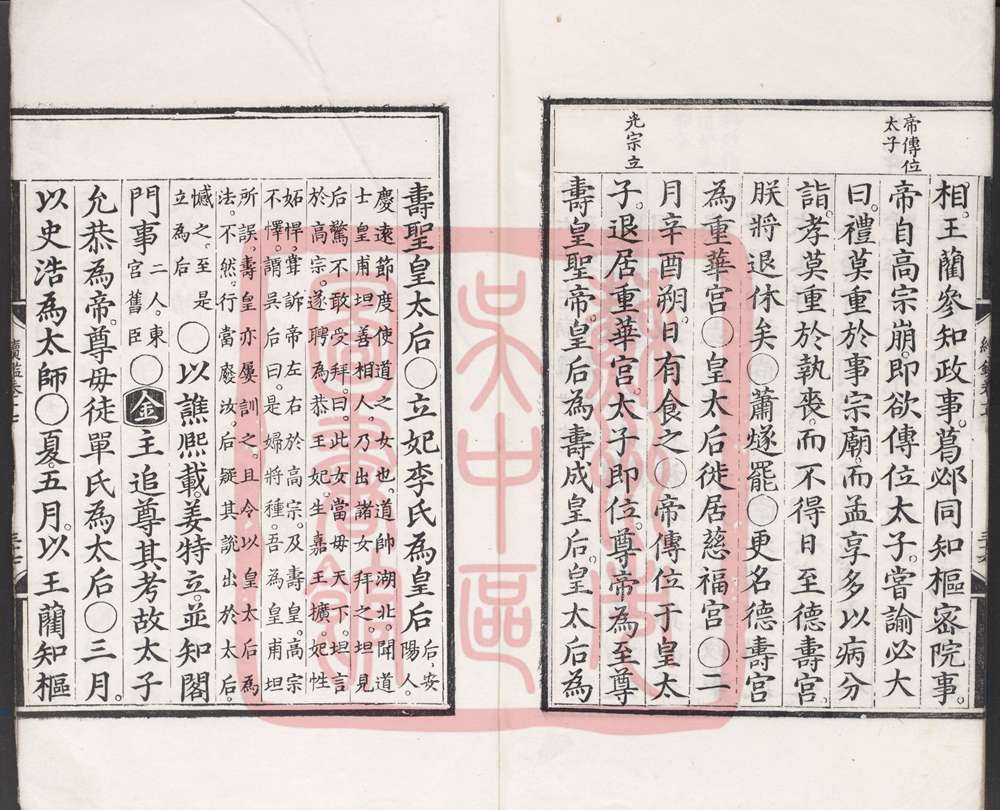 帝傳位
太子
相。王藺參知政事。葛邲同知樞密院事。
帝自高宗崩。即欲傳位太子。嘗諭必大
曰。禮莫重於事宗廟。而孟享多以病分
詣。孝莫重於執喪。而不得日至德壽宮。
朕將退休矣○蕭燧罷○更名德壽宮
為重華宮○皇太后徙居慈福宮○二
月辛酉朔。日有食之○帝傳位于皇太
光宗立
子。退居重華宮。太子即位。尊帝為至尊
壽皇聖帝。皇后為壽成皇后。皇太后為
壽聖皇太后○立妃李氏為皇后
后。安
陽人。
慶遠節度使道之女也。道帥湖北。聞道
士皇甫坦善相人。乃出諸女拜之。坦見
后驚不敢受拜。曰。此女當母天下。坦言
於高宗。遂聘為恭王妃。生嘉王擴。妃性
妬悍。甞訴帝左右於高宗及壽皇。高宗
不懌。謂吳后曰。是婦將種。吾為皇甫坦
所誤。壽皇亦屢訓之。且令以皇太后為
法。不然。行當廢汝。后疑其說出於太后。
憾之。至是
立為后
○以譙熙載。姜特立。並知閤
門事
二人。東
宮舊臣
○金主追尊其考故太子
允恭為帝。尊母徒單氏為太后○三月。
以史浩為太師○夏。五月。以王藺知樞
吳中區
圖書館